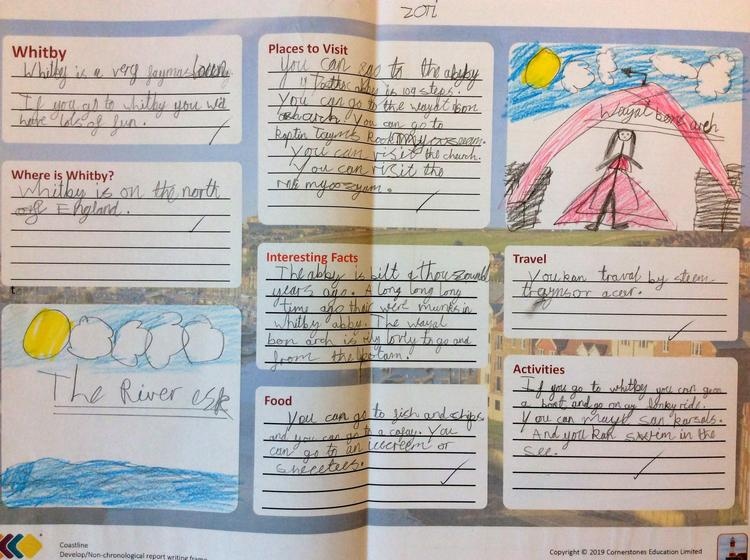 zoti
Whitby
Whitby is a very faymas
If you go to whitby you will
have lots of fun.
Where is Whitby?
Whitby is on the north
of England.
The River esk
Places to Visit
You can go to the abby
abby is 199 steps.
You can go to the wayal bon
arch You can go to
kaptin Cook
You can visit the church.
You can visit the
Interesting Facts
The abby is bilt a thousand
years ago. A long long long
time ago their were munks in
whitby abby. The wayal
bon arch is very lovly to go and
from the
Food
You can go to fish and ships
and you can go to a cafay. You
can go to an icecreem or
sheeetees.
wayal bon arch
Travel
You kan traval by steem
trayns or a car.
Activities
If you go to whitby you can go on
a boat and go on a donky ride.
You can mayk san karsals.
And you kan swim in the
see.
Coastline
Develop/Non-chronological report writing frame
Copyright © 2019 Cornerstones Education Limited